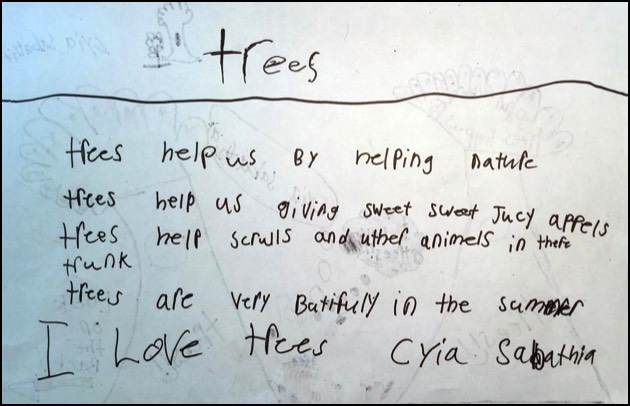 trees
trees help us By helping nature
trees help us giving sweet sweet Jucy appels
trees help scrulls and uther animels in there
trunk
trees are very Batifuly in the summer
I Love trees Cyia Sabathia